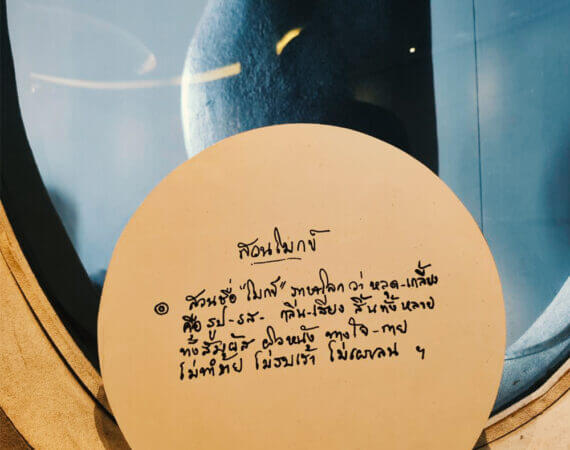 สวนโมกข์
๏ สวนชื่อ "โมกข์" ภาษาโลก ว่า หลุด-เกลี้ยง
คือ รูป-รส- กลิ่น-เสียง สิ้นทั้งหลาย
ทั้งสัมผัส ผิวหนัง ทางใจ-กาย
ไม่ทำร้าย ไม่รบเร้า ไม่เผาลน ฯ